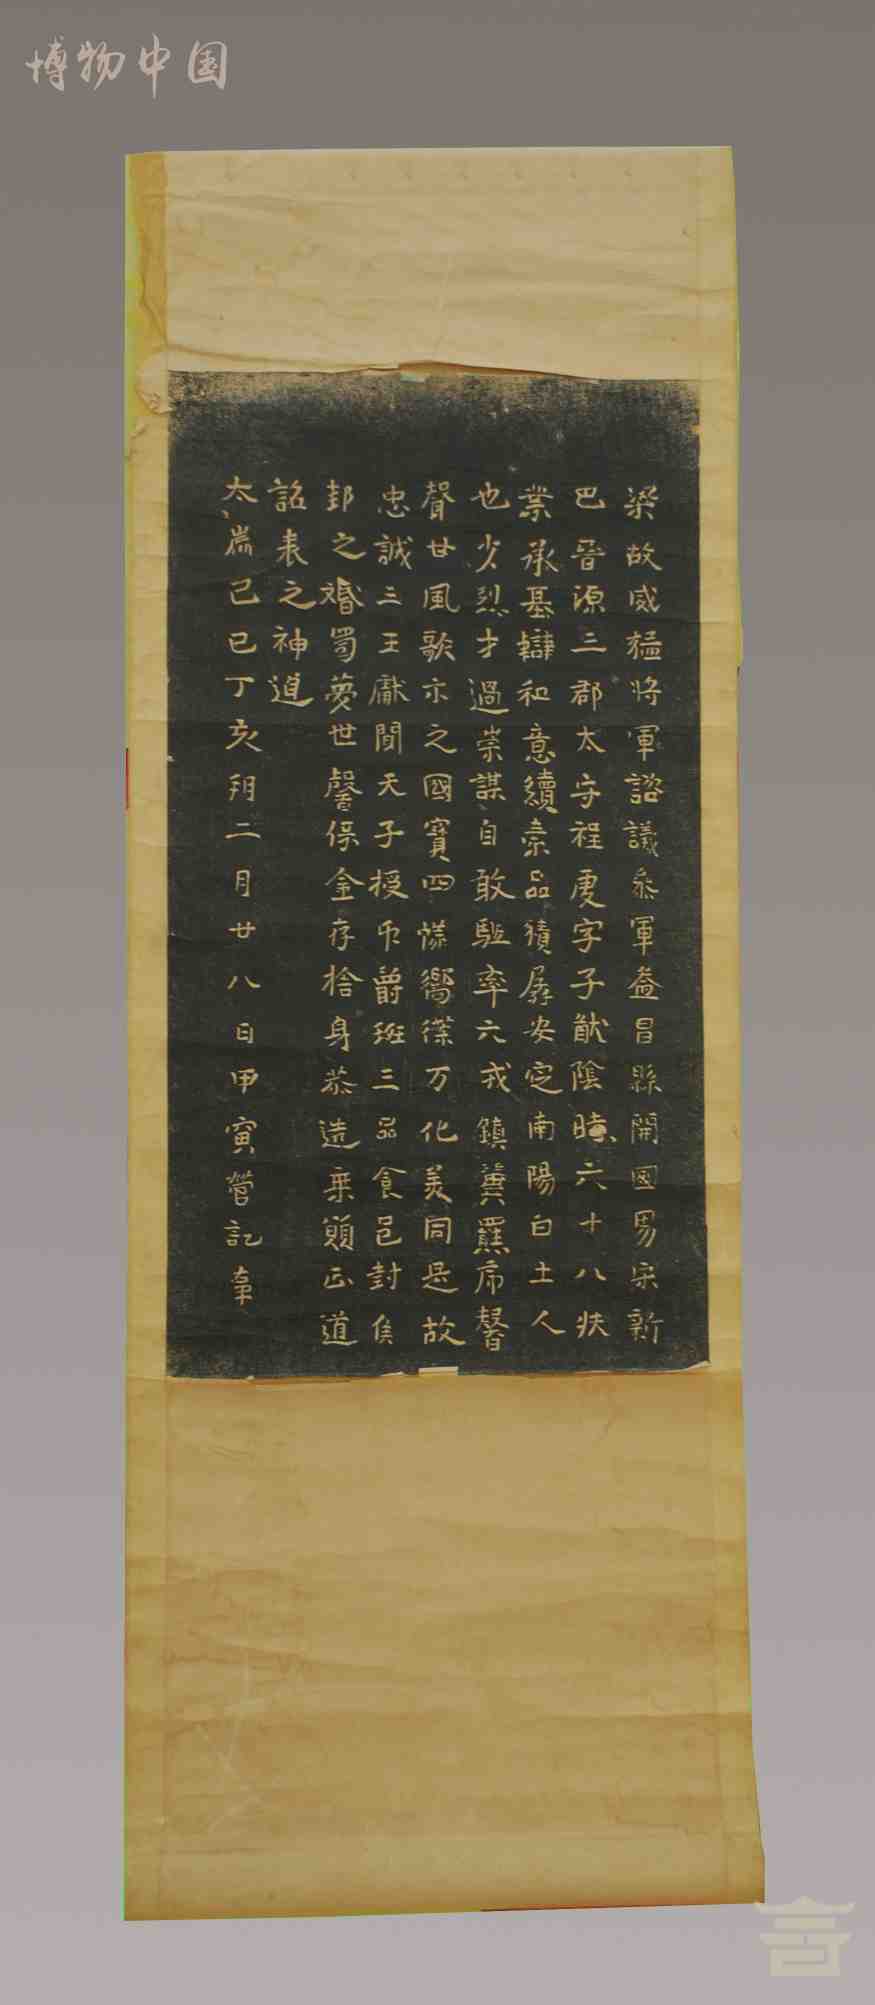 博物中国
梁故威猛將軍諮議參軍益昌縣開國男宋新
巴晉源三郡太守程虔字子猷陰時六十八使
業承基辯和意續素品積孱安定南陽白土人
也少烈才過崇謀自敢駈率六戎鎮冀羆席馨
聲廿風歌示之國寶四憐嚮徽万化美同是故
忠誠三王厭聞天子授節爵班三品食邑封侯
邦之婚蜀夢世馨保金存捨身恭造乘顗正道
詺表之神道
太歲己巳丁亥朔二月廿八日甲寅營記韋